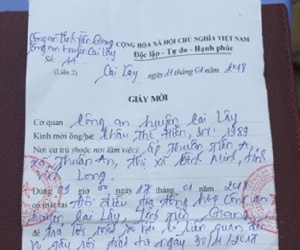 Công an tỉnh Tiền Giang
CỘNG HÒA XÃ HỘI CHỦ NGHĨA VIỆT NAM
Công an huyện Cai Lậy
Độc lập - Tự do - Hạnh phúc
Số: 11
(Liên 2)
Cai Lậy, ngày 11 tháng 01 năm 2018
GIẤY MỜI
Cơ quan Công an huyện Cai Lậy
Kính mời ông/bà: Châu Thị Tiền, SN: 1989
Nơi cư trú (hoặc nơi làm việc) ấp Thuận Tiến A,
xã Thuận An, thị xã Bình Minh, tỉnh
Vĩnh Long.
Đúng 09 giờ 00 ngày 17 tháng 01 năm 2018
có mặt tại Đội điều tra tổng hợp Công an
huyện Cai Lậy, tỉnh Tiền Giang
Để liên quan đến
vụ gây rối ngày 30/11/2017